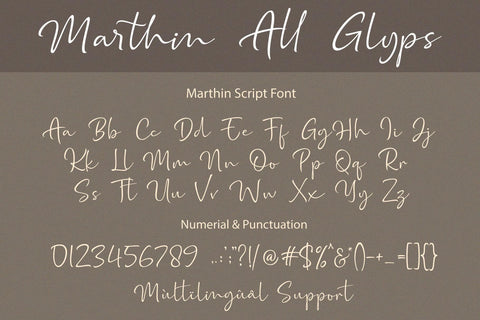 Marthin All Glyps
Marthin Script Font
Aa Bb Cc Dd Ee Ff Gg Hh Ii Jj
Kk Ll Mm Nn Oo Pp Qq Rr
Ss Tt Uu Vv Ww Xx Yy Zz
Numerial & Punctuation
0123456789 ..:;'"?!/@#$%^&*()-+_=[]{}
Mùltïlingûâl Support